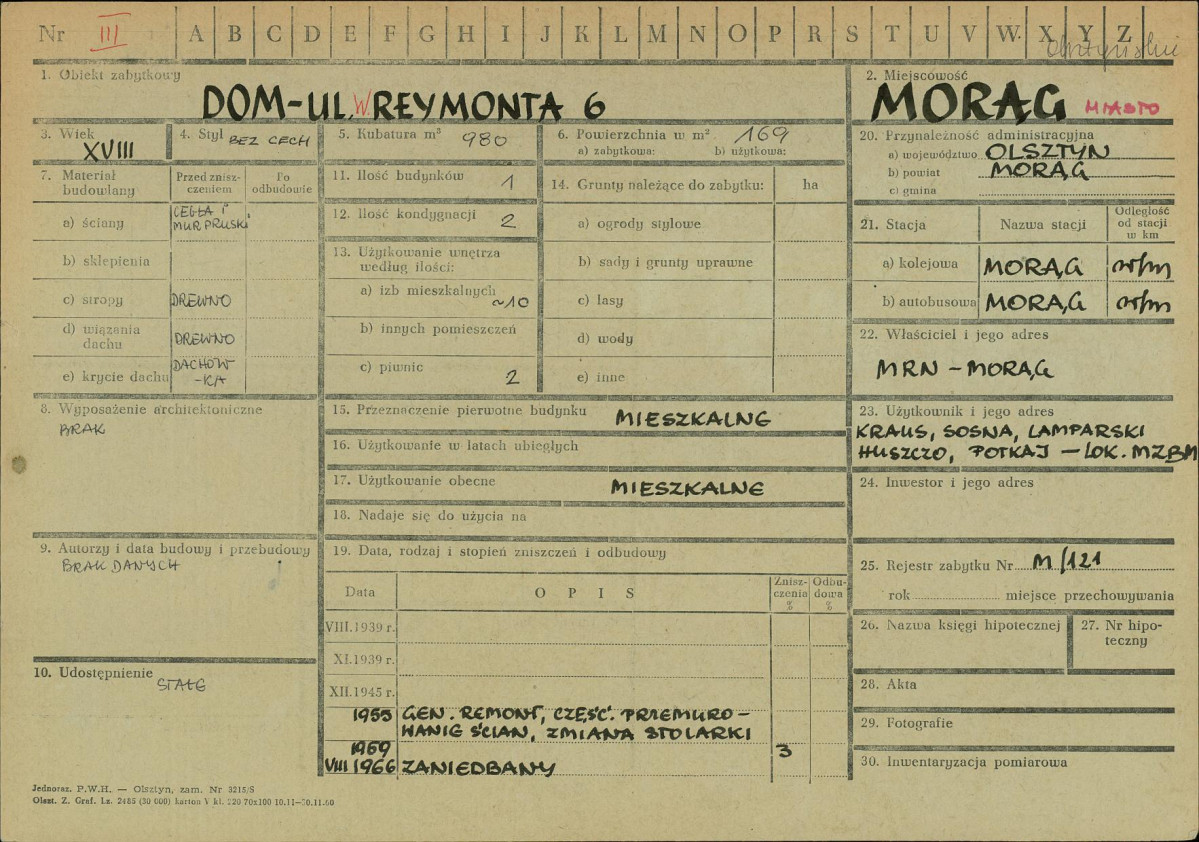 Nr III A B C D E F G H I J K L M N O P R S T U V W X Y Z
olsztyńskie
1. Obiekt zabytkowy
DOM-UL. W. REYMONTA 6
2. Miejscowość
MORĄG MIASTO
3. Wiek
XVIII
4. Styl BEZ CECH
5. Kubatura m³ 980
6. Powierzchnia w m² 169
a) zabytkowa: b) użytkowa:
7. Materiał budowlany
Przed zniszczeniem
Po odbudowie
a) ściany CEGŁA I MUR PRUSKI
b) sklepienia
c) stropy DREWNO
d) wiązania dachu DREWNO
e) krycie dachu DACHÓW-KA
8. Wyposażenie architektoniczne
BRAK
9. Autorzy i data budowy i przebudowy
BRAK DANYCH
10. Udostępnienie
STAŁE
11. Ilość budynków 1
12. Ilość kondygnacji 2
13. Użytkowanie wnętrza
według ilości:
a) izb mieszkalnych ~10
b) innych pomieszczeń
c) piwnic 2
14. Grunty należące do zabytku: ha
a) ogrody stylowe
b) sady i grunty uprawne
c) lasy
d) wody
e) inne
15. Przeznaczenie pierwotne budynku MIESZKALNE
16. Użytkowanie w latach ubiegłych
17. Użytkowanie obecne MIESZKALNE
18. Nadaje się do użycia na
19. Data, rodzaj i stopień zniszczeń i odbudowy
Data O P I S Zniszczenia % Odbudowa %
VIII.1939 r.
XI.1939 r.
XII.1945 r.
1955 GEN. REMONT, CZĘŚĆ. PRZEMURO-
WANIE ŚCIAN, ZMIANA STOLARKI
1969 3
VIII 1966 ZANIEDBANY
20. Przynależność administracyjna
a) województwo OLSZTYN
b) powiat MORĄG
c) gmina
21. Stacja Nazwa stacji Odległość od stacji w km
a) kolejowa MORĄG
b) autobusowa MORĄG
22. Właściciel i jego adres
MRN - MORĄG
23. Użytkownik i jego adres
KRAUS, SOSNA, LAMPARSKI
HUSZCZO, POTKAJ - LOK. MZBM
24. Inwestor i jego adres
25. Rejestr zabytku Nr M/121
rok miejsce przechowywania
26. Nazwa księgi hipotecznej
27. Nr hipo-
teczny
28. Akta
29. Fotografie
30. Inwentaryzacja pomiarowa
Jednoraz. P.W.H. — Olsztyn, zam. Nr 3215/S
Olszt. Z. Graf. Lz. 2485 (30 000) karton V kl. 220 70x100 10.11—30.11.60